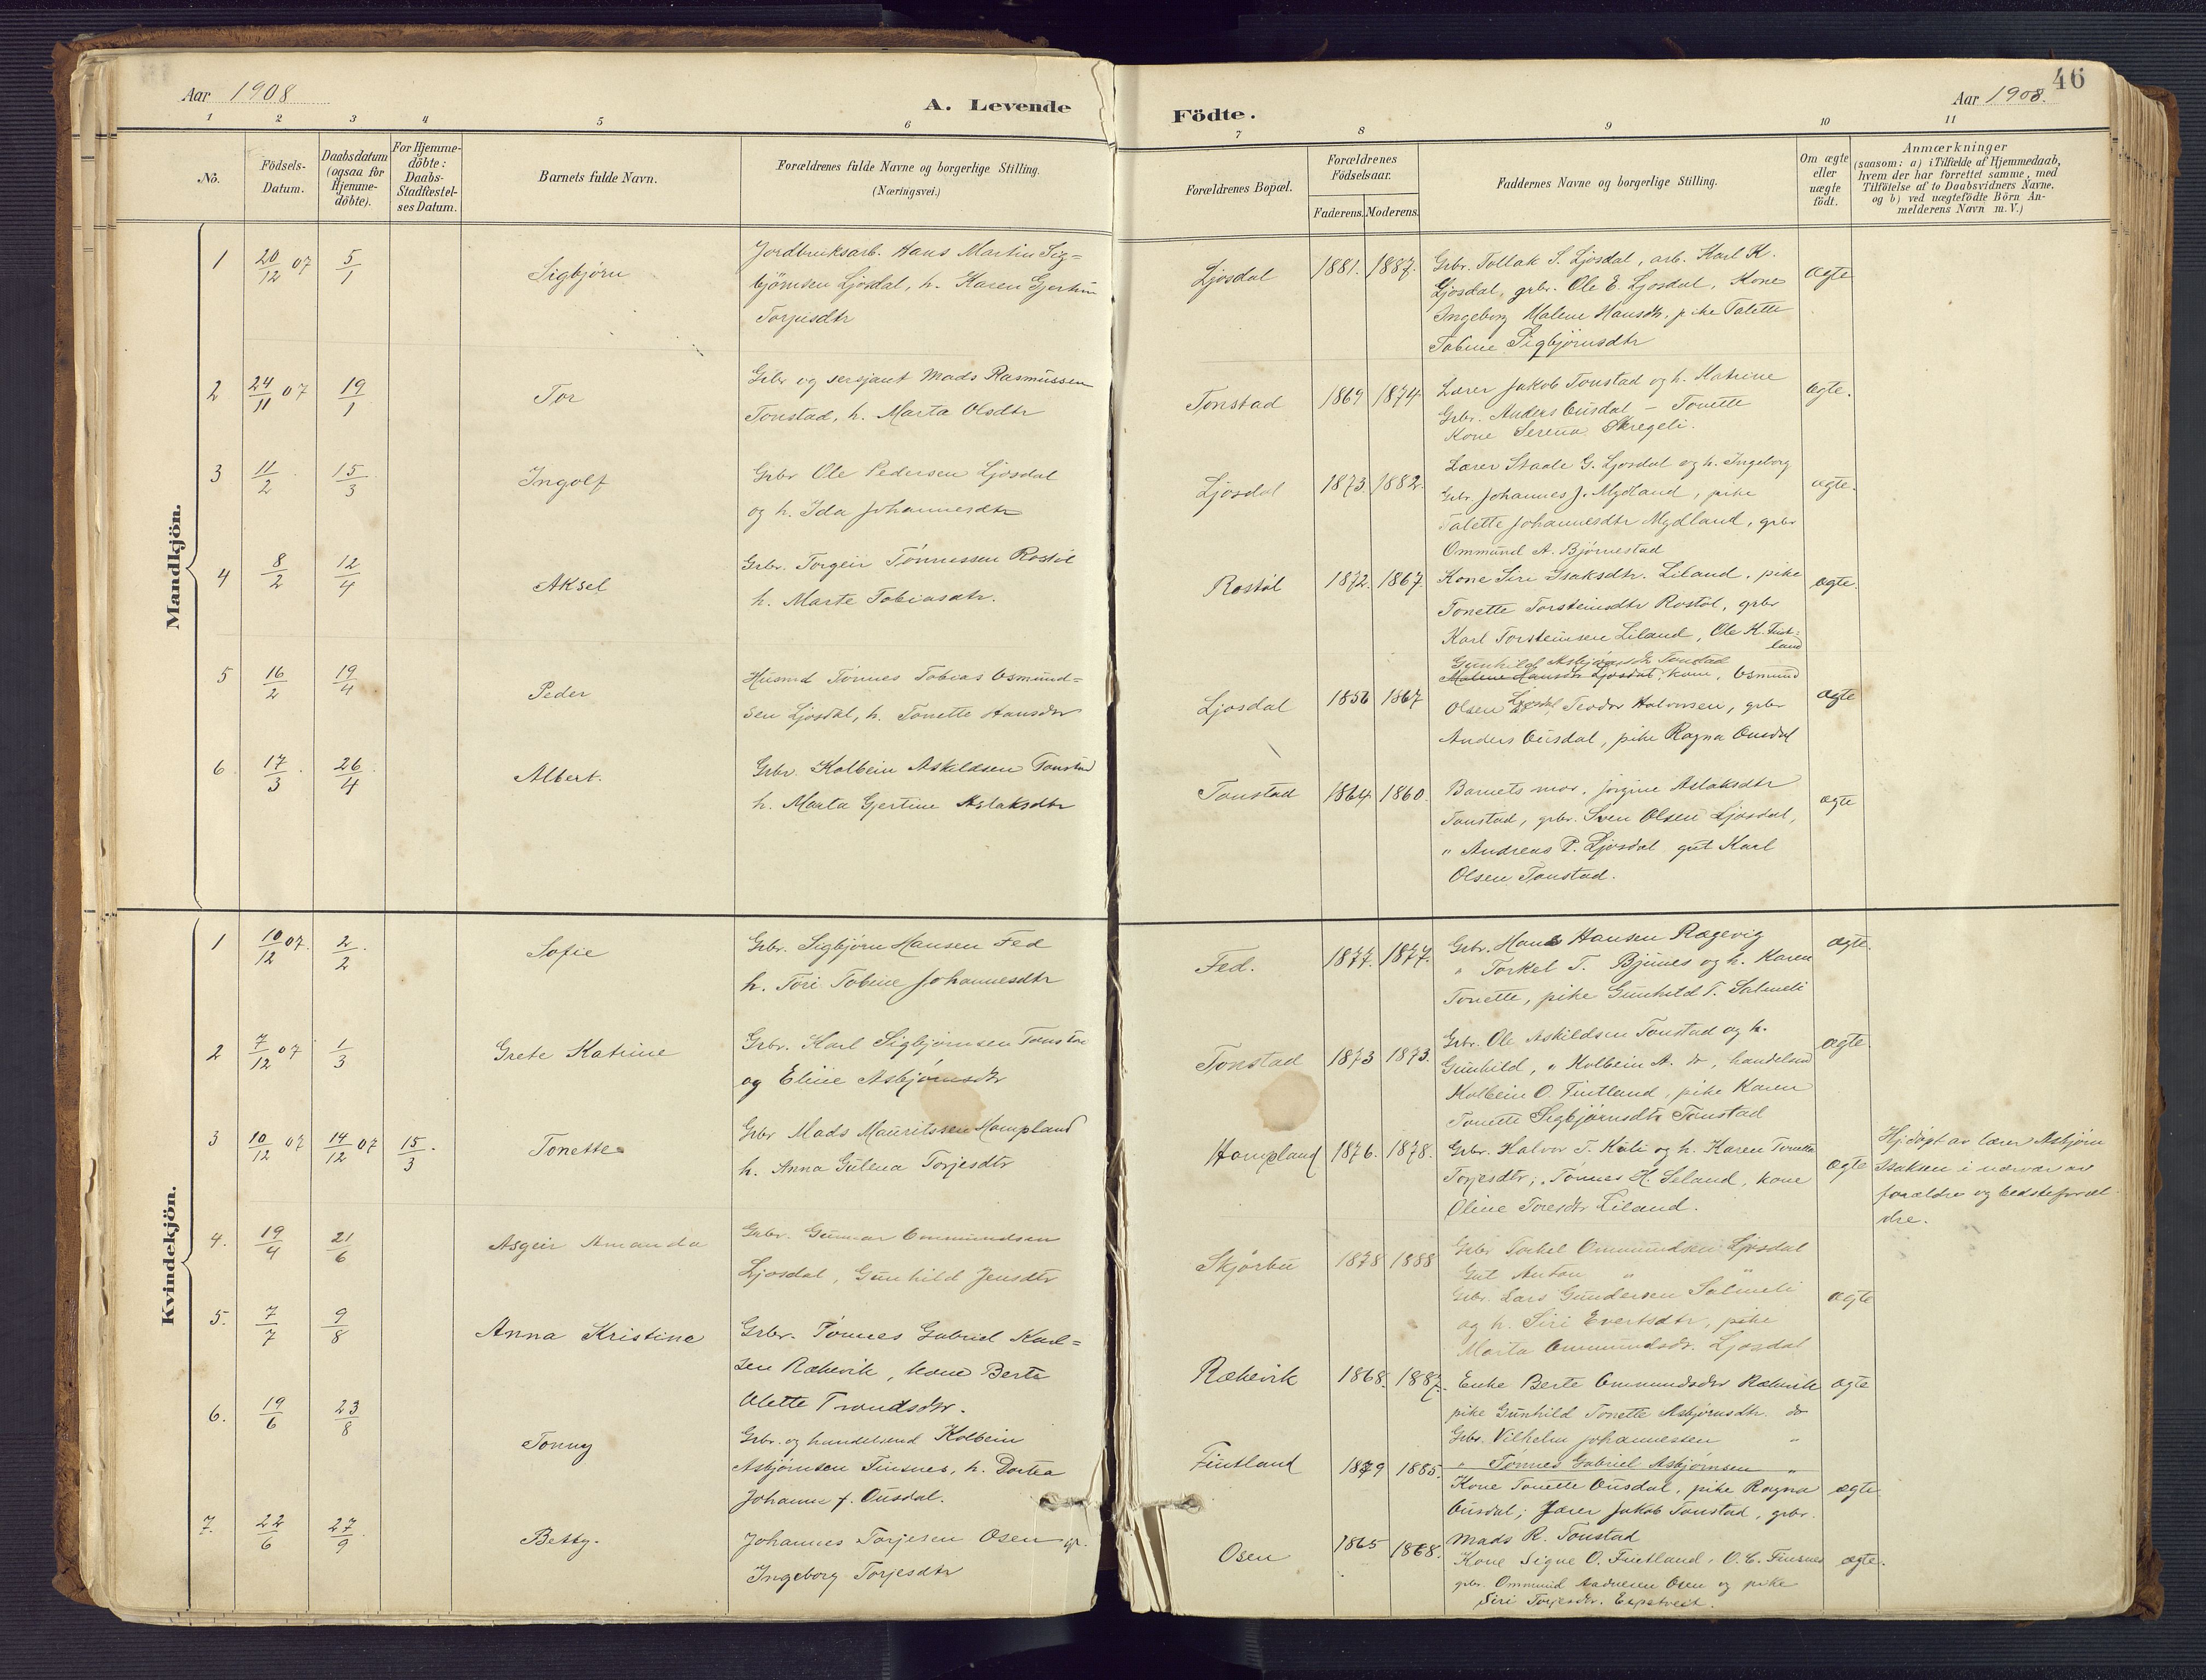 46
Aar 1908
A. Levende
Födte.
Aar 1908.
1 2 3 4 5 6 7 8 9 10 11
No.
Födsels-Datum.
Daabsdatum (ogsaa för Hjemme-döbte).
For Hjemme-döbte: Daabs-Stadfæstel-ses Datum.
Barnets fulde Navn.
Forældrenes fulde Navne og borgerlige Stilling. (Næringsvei.)
Forældrenes Bopæl.
Forældrenes Födselsaar.
Faderens. Moderens.
Faddernes Navne og borgerlige Stilling.
Om ægte eller uægte födt.
Anmærkninger
(saasom: a) i Tilfælde af Hjemmedaab,
hvem der har forrettet samme, med
Tilföielse af to Daabsvidners Navne,
og b) ved uægtefödte Börn An-
melderens Navn m. V.)
Mandkjön.
1 20/12 07 5/1 Sigbjørn
Jordbruksarb. Hans Martin Sig=
bjørnsen Ljosdal, h. Karen Gjertine
Torjusdtr
Ljosdal 1881. 1887.
Grbr. Tollak S. Ljosdal, arb. Karl K.
Ljosdal, grbr. Ole E. Ljosdal, Kone
Ingeborg Malene Hansdtr, pike Talette
Tobine Sigbjørnsdtr
ægte
2 24/11 07 19/1 Tor
Grbr og sersjant Mads Rasmussen
Tonstad, h. Marta Olsdtr
Tonstad 1869 1874
Lærer Jakob Tonstad og h. Katrine
Grbr. Anders Ousdal – Tonette
Kone Serena Skregeli.
ægte.
3 11/2 15/3 Ingolf
Grbr Ole Pedersen Ljosdal
og h. Ida Johannesdtr
Ljosdal 1873 1882.
Lærer Staale G. Ljosdal og h. Ingeborg
Grbr. Johannes J. Mydland, pike
Talette Johannesdtr Mydland, grbr
Ommund A. Bjørnestad
ægte.
4 8/2 12/4 Aksel
Grbr. Torgeir Tønnessen Rostøl
h. Marte Tobiasdtr.
Rostøl 1872. 1867
Kone Siri Isaksdtr. Liland, pike
Tonette Torsteinsdtr Rostøl, grbr
Karl Torsteinsen Liland, Ole K. Fint=
land
ægte.
5 16/2 19/4 Peder
Husmd Tønnes Tobias Osmund=
sen Ljosdal, h. Tonette Hansdtr
Ljosdal 1856 1867
Gunhild Asbjørnsdtr Tonstad
Malene Hansdtr Ljosdal, kone, Osmund
Olsen Ljosdal, Teodor Halvorsen, grbr
Anders Ousdal, pike Ragna Ousdal
ægte
6 17/3 26/4 Albert.
Grbr. Kolbein Askildsen Tonstad
h. Marta Gjertine Aslaksdtr
Tonstad 1864 1860.
Barnets mor, Jørgine Aslaksdtr
Tonstad, grbr. Sven Olsen Ljosdal,
" Andreas P. Ljosdal gut Karl
Olsen Tonstad.
ægte
Kvindekjön.
1 10/12 07. 2/2 Sofie
Grbr. Sigbjørn Hansen Fed
h. Tori Tobine Johannesdtr
Fed. 1877. 1877.
Grbr. Hans Hansen Rægevig
" Torkel T. Bjunes og h. Karen
Tonette, pike Gunhild T. Salmeli
ægte.
2 7/12 07 1/3 Grete Katrine
Grbr. Karl Sigbjørnsen Tonstad
og Eline Asbjørnsdtr
Tonstad 1873 1873.
Grbr. Ole Askildsen Tonstad og h.
Gunhild, " Kolbein A. do, handelsmd
Kolbein O. Fintland, pike Karen
Tonette Sigbjørnsdtr Tonstad
ægte.
3 10/12 07 14/12 07 15/3. Tonette
Grbr Mads Mauritssen Hompland
h. Anna Gulena Torjesdtr
Hompland 1876. 1878.
Grbr. Halvor T. Kvli og h. Karen Tonette
Torjesdtr, Tønnes H. Seland, kone
Oline Toresdtr Liland.
ægte
Hj.døpt av lærer Asbjørn
Isaksen i nærvær av
forældre og bedsteforæl
dre.
4. 19/4 21/6 Asgeir Amanda
Grbr. Gunnar Ommundsen
Ljosdal, Gunhild Jensdtr
Skjørbu 1878 1888
Grbr Torkel Ommundsen Ljosdal
Gut Anton " "
Grbr. Lars Gundersen Salmeli
og h. Siri Evertsdtr, pike
Marta Ommundsdtr. Ljosdal
ægte
5. 7/7 9/8 Anna Kristine
Grbr. Tønnes Gabriel Karl=
sen Rækevik, kone Berte
Alette Trondsdtr.
Rækevik 1868. 1887.
Enke Berte Ommundsdtr Rækevik
pike Gunhild Tonette Asbjørnsdtr. do
Grbr. Vilhelm Johannessen "
" Tønnes Gabriel Asbjørnsen "
ægte
6. 19/6 23/8 Tonny
Grbr. og handelsmd Kolbein
Asbjørnsen Finsnes, h. Dortea
Johanne f. Ousdal.
Fintland 1879 1885.
Kone Tonette Ousdal, pike Ragna
Ousdal; Lærer Jakob Tonstad, grbr.
Mads R. Tonstad
ægte
7. 22/6 27/9 Betty.
Johannes Torjesen Osen og
Ingeborg Torjesdtr
Osen 1865 1868.
Kone Signe O. Fintland, O. E. Finsnes
grbr. Ommund Aadnesen Osen og pike
Siri Torjesdtr. Espetveit.
ægte.